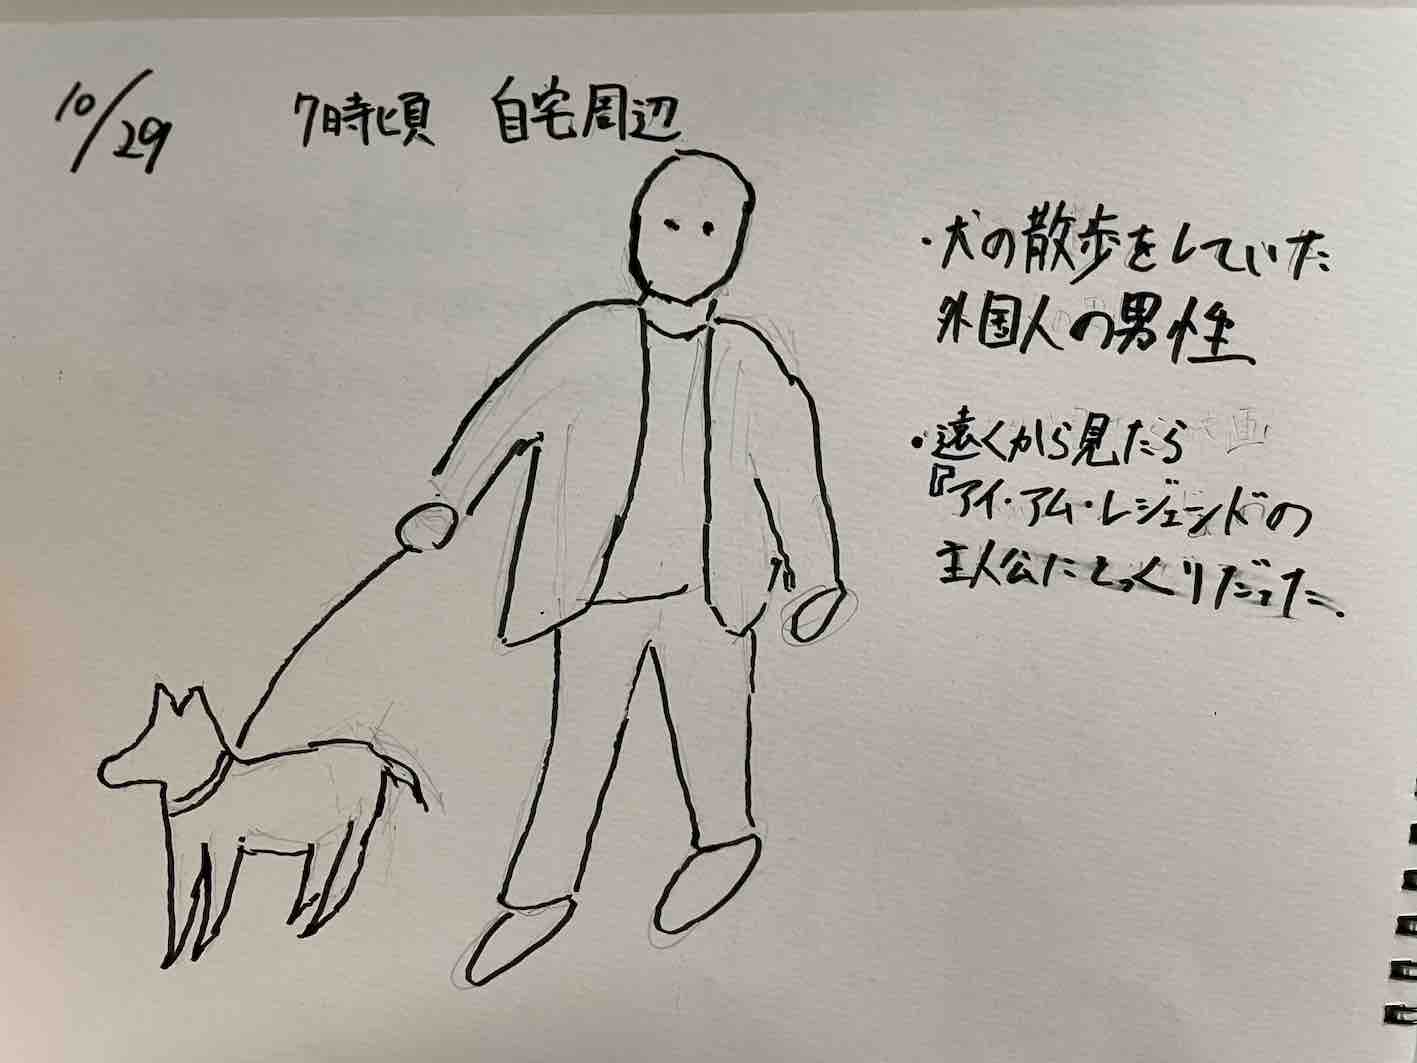 10/29 7時頃 自宅周辺
・犬の散歩をしていた
外国人の男性
・遠くから見たら
『アイ・アム・レジェンドの
主人公にそっくりだった。